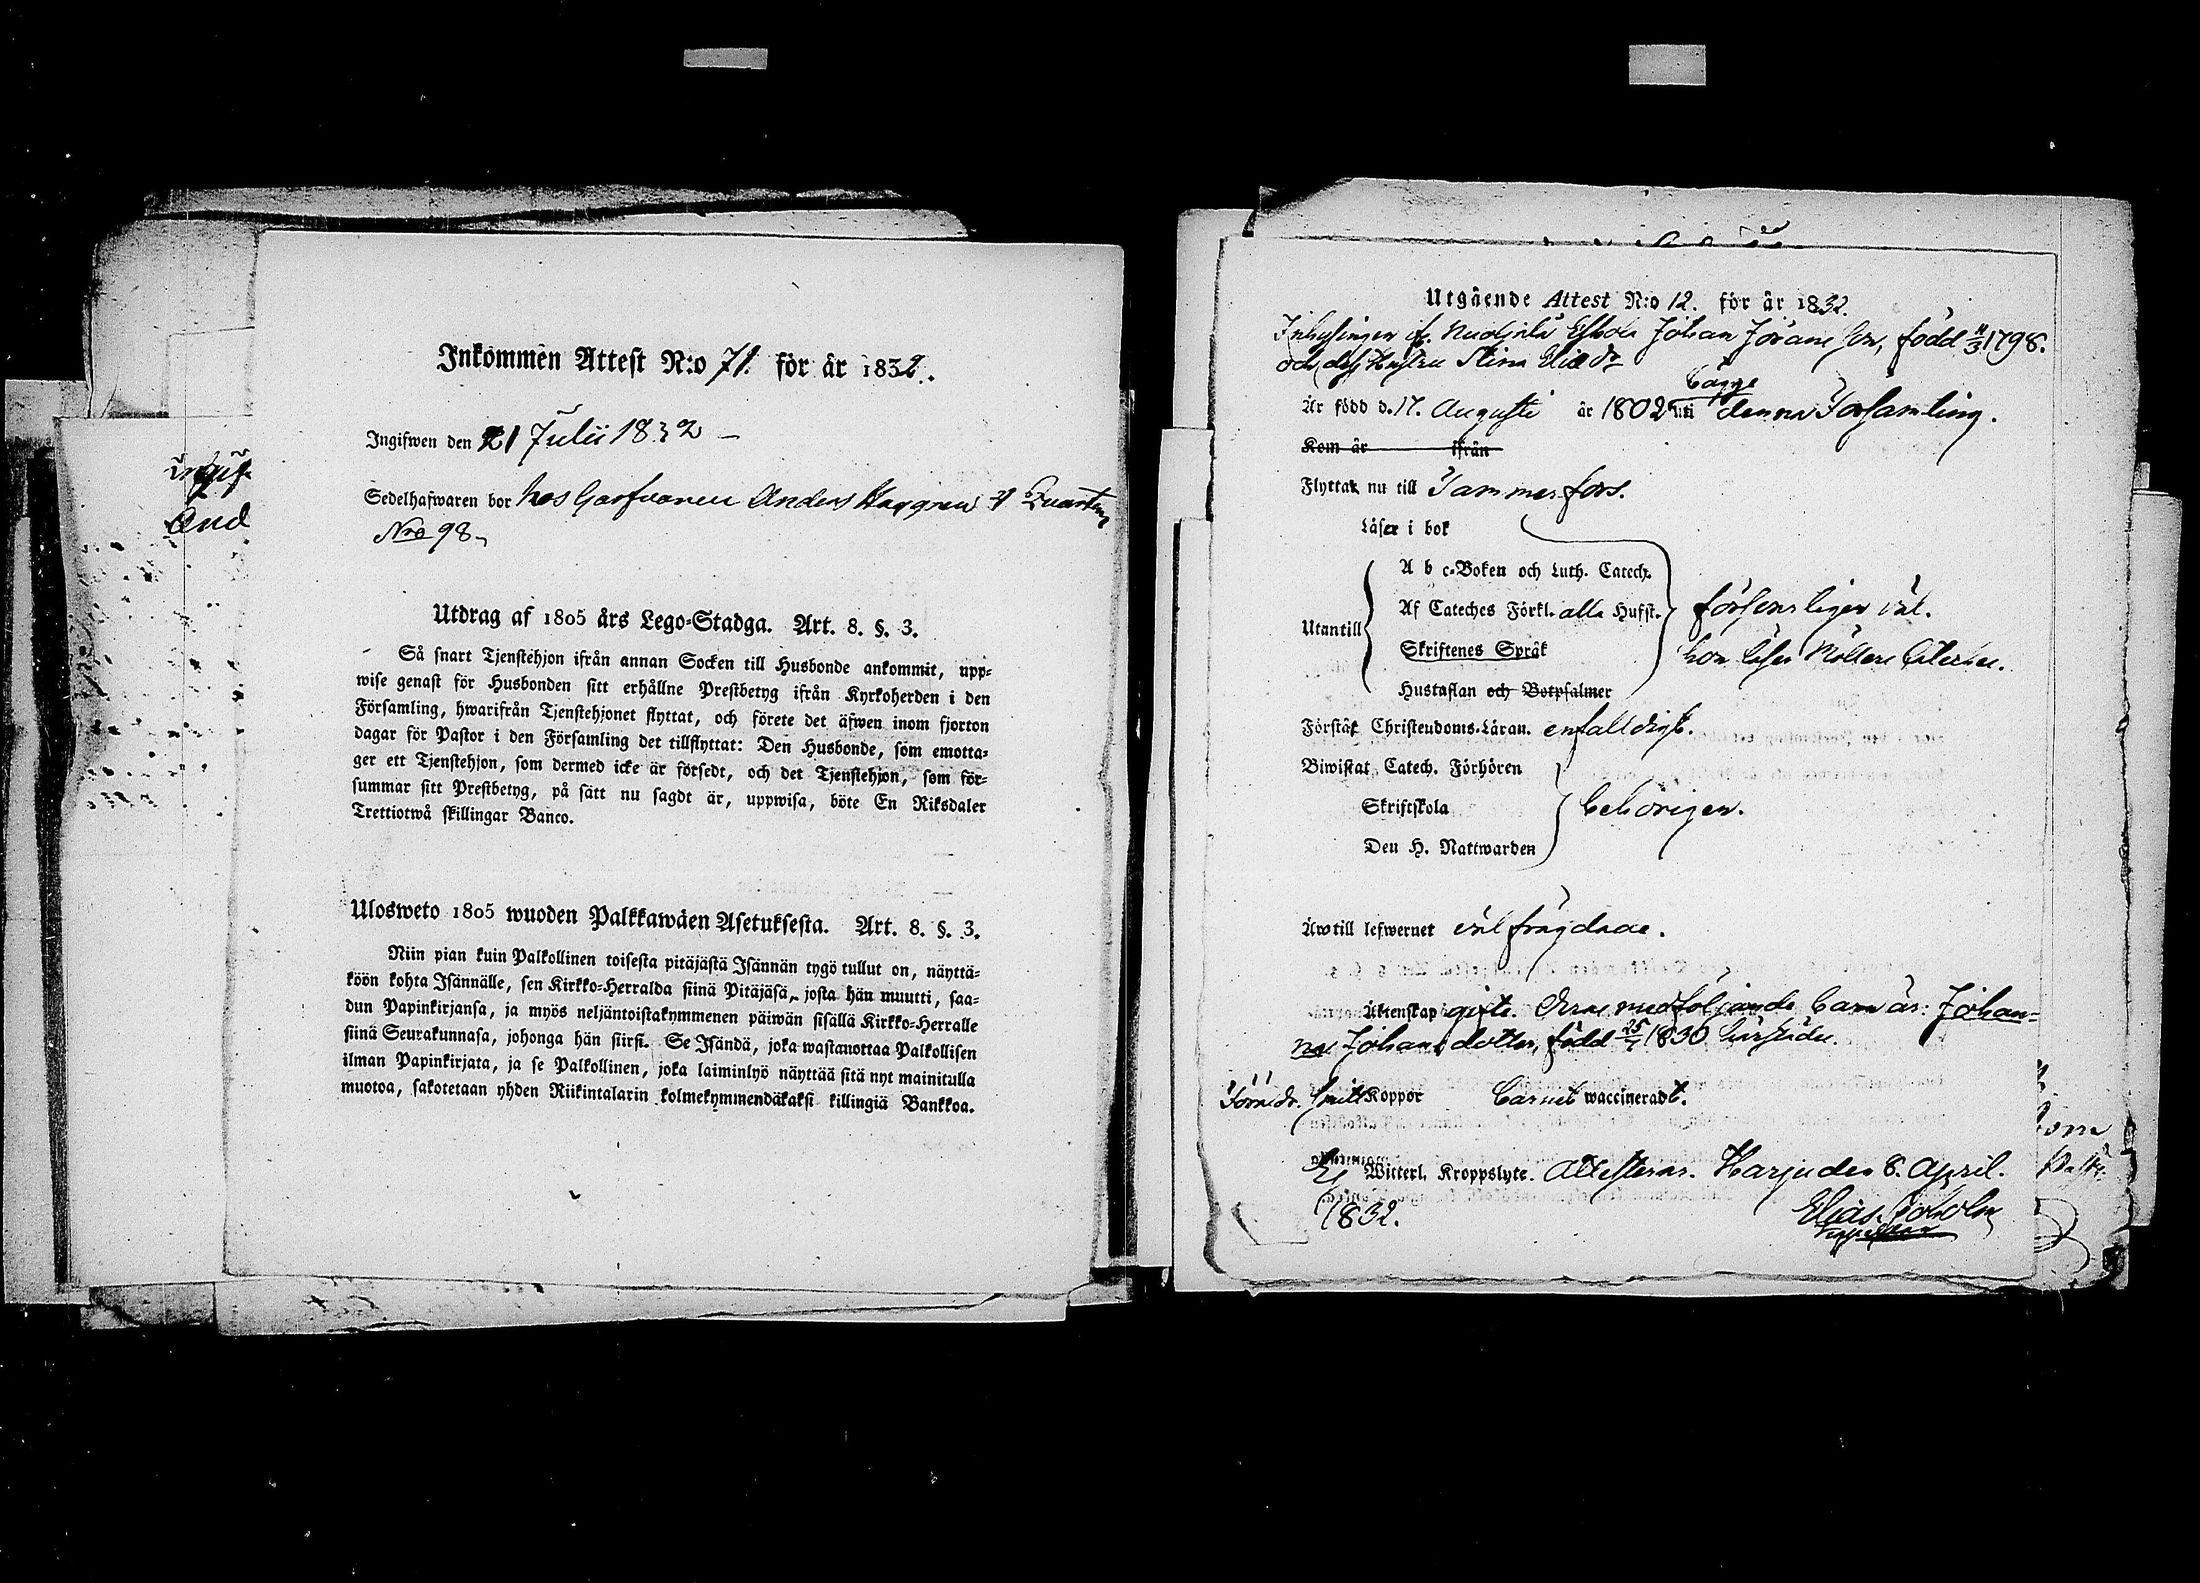 Inkommen Attest N:o 71. för år 1832.
Ingifwen den 21 Julii 1832 –
Sedelhafwaren bor hos Garfvaren Anders Haggren 4 Quarter
Nro 98
Utdrag af 1805 års Lego-Stadga. Art. 8. §. 3.
Så snart Tjenstehjon ifrån annan Socken till Husbonde ankommit, upp-
wise genast för Husbonden sitt erhållne Prestbetyg ifrån Kyrkoherden i den
Församling, hwarifrån Tjenstehjonet flyttat, och förete det äfwen inom fjorton
dagar för Pastor i den Församling det tillflyttat: Den Husbonde, som emotta-
ger ett Tjenstehjon, som dermed icke är försedt, och det Tjenstehjon, som för-
summar sitt Prestbetyg, på sätt nu sagdt är, uppwisa, böte En Riksdaler
Trettiotwå skillingar Banco.
Ulosweto 1805 wuoden Palkkawäen Asetuksesta. Art. 8. §. 3.
Niin pian kuin Palkollinen toisesta pitäjästä Isännän tygö tullut on, näyttä-
köön kohta Isännälle, sen Kirkko-Herralda siinä Pitäjäsä, josta hän muutti, saa-
dun Papinkirjansa, ja myös neljäntoistakymmenen päiwän sisällä Kirkko-Herralle
siinä Seurakunnasa, johonga hän siirsi. Se Isändä, joka wastanottaa Palkollisen
ilman Papinkirjata, ja se Palkollinen, joka laiminlyö näyttää sitä nyt mainitulla
muotoa, sakotetaan yhden Riikintalarin kolmekymmendäkaksi killingiä Bankkoa.
ingif
And
Utgående Attest N:o 12. för år 1832.
Inhysingen Johan Jörans son, född 11/3 1798.
och dess Hustru Stina Elia dr
Är född d. 17. Augusti år 1802 uti bägge denna Församling.
Kom år ifrån
Flyttar nu till Tammerfors.
Läser i bok
Utantill
A b c-Boken och Luth. Catech.
Af Cateches Förkl. alla Hufst.
Skriftenes Språk
Hustaflan och Botpsalmer
försenligen väl.
hon läser Möllers Cateches.
Förstår Christendoms-Läran. enfaldigt.
Biwistat Catech. Förhören
Skriftskola
Den H. Nattwarden
behörigen.
Äwtill lefwernet välfrägdade.
Äktenskap gifte. Deras medföljande barn är: Johan-
na Johans dotter, född 25/7 1830 härstädes.
haft Koppor Barnet waccineradt.
Ej Witterl. Kroppslyte. Attesteras. Harju den 8. April.
1832.
Elias